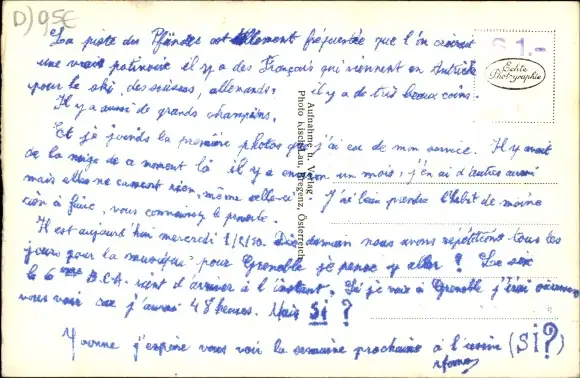 D) 95€
S 1.-
Echte Photographie
La piste du Pfänder est tellement fréquentée que l'on croirait
une vrai patinoire il y a des Français qui viennent en Autriche
pour le ski, des suisses, allemands. il y a de très beaux coins.
Il y a aussi de grands champions.
Et je joinds la première photos que j'ai eu de mon service. Il y avait
de la neige de ce moment là il y a environ un mois, j'en ai d'autres aussi
mais elles ne valent rien, même celle-ci J'ai beau prendre l'habit de moine
rien à faire, vous connaissez le proverbe.
Il est aujourd'hui mercredi 1/2/50. Dès demain nous avons répétitions tous les
jours pour la musique pour Grenoble je pense y aller ? La
le 6ème B.C.A. vient d'arriver à l'instant. Si je vais à Grenoble j'irai
vous voir car j'aurai 48 heures. Mais Si ?
Yvonne j'espère vous voir la semaine prochaine à l'usine (Si?)
Aufnahme u. Verlag
Photo Kischlau, Bregenz, Österreich